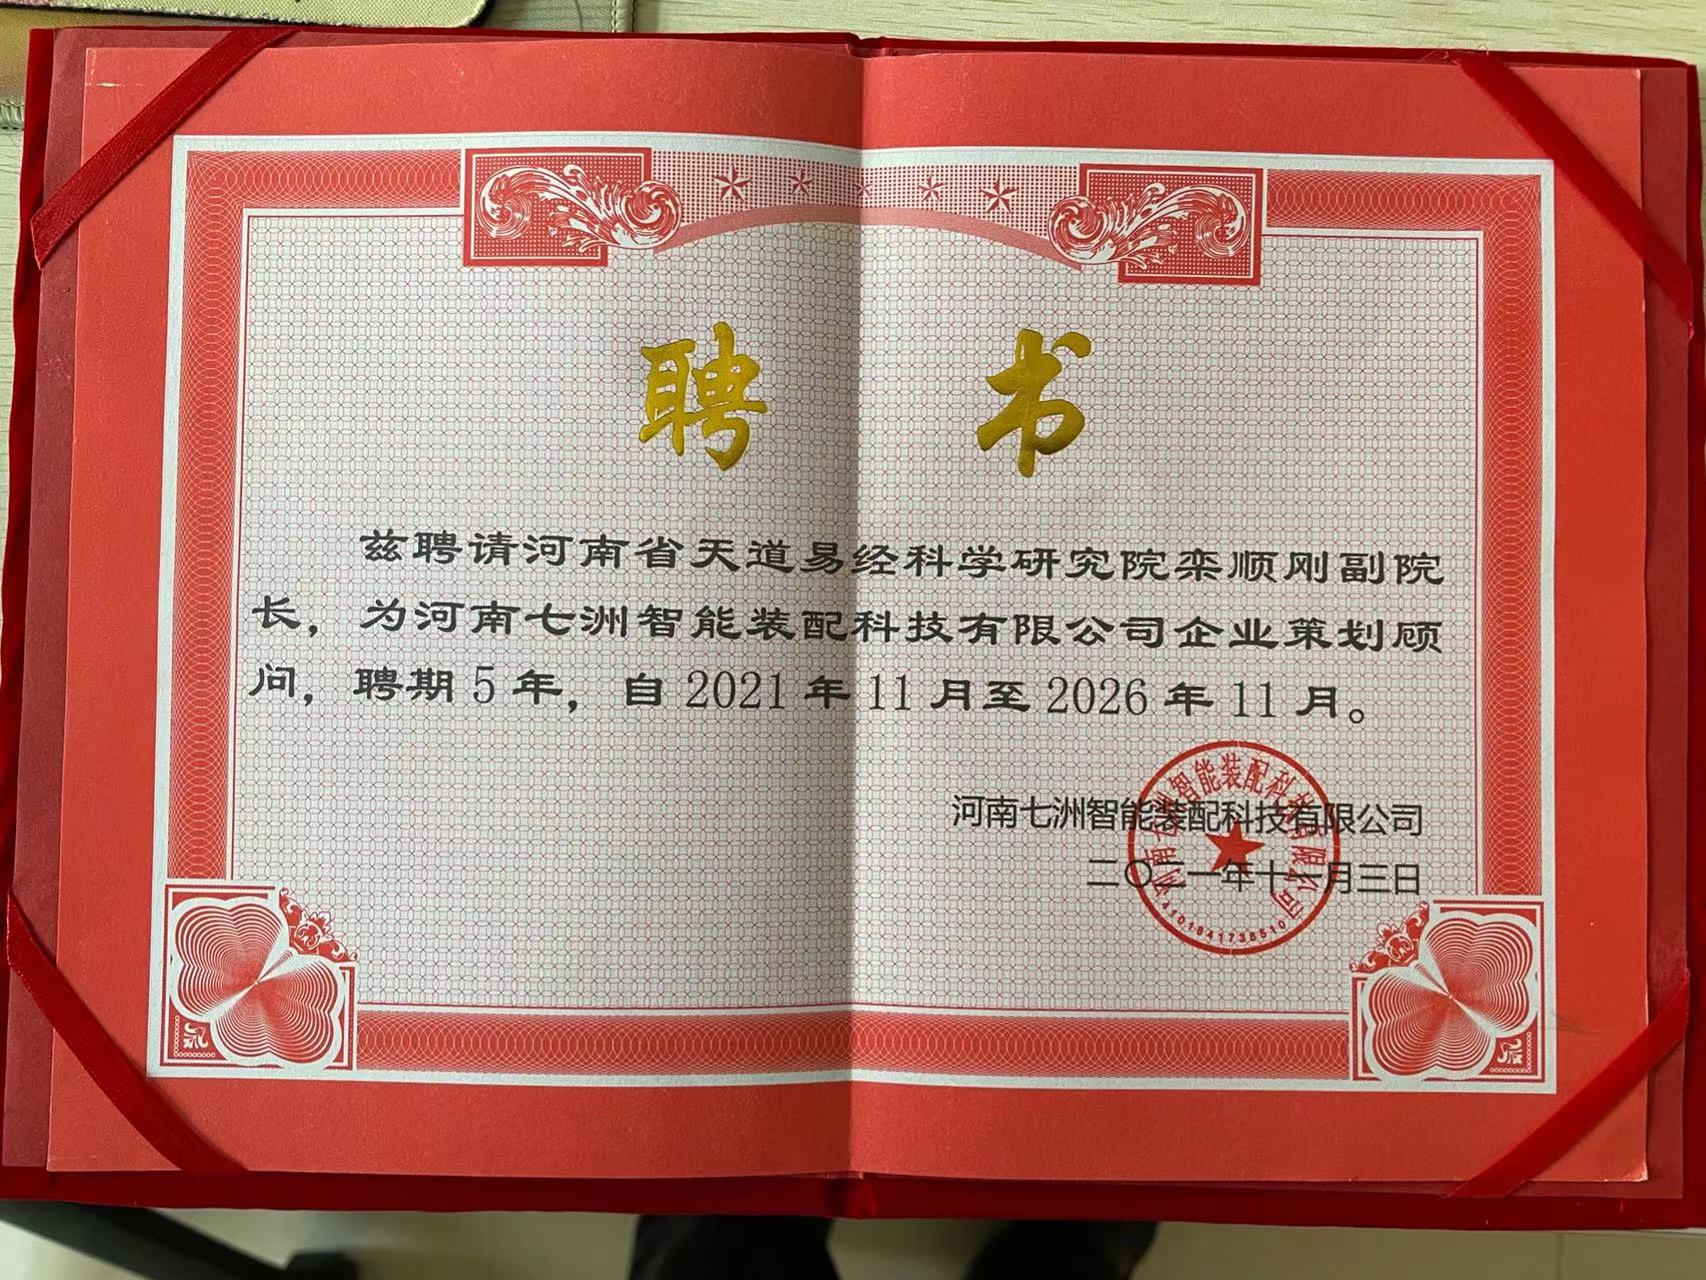 聘书
兹聘请河南省天道易经科学研究院栾顺刚副院
长，为河南七洲智能装配科技有限公司企业策划顾
问，聘期5年，自2021年11月至2026年11月。
河南七洲智能装配科技有限公司
二〇二一年十一月三日
河南七洲智能装配科技有限公司
4101841738510